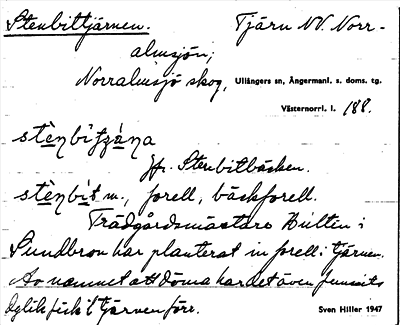 Stenbittjärnen. Tjärn NV. Norr-
almsjön;
Norralmsjö skog, Ullångers sn, Ångermanl. s. doms. tg.
Västernorrl. l. 188.
stènbitzàna
Jfr. Stenbitbäcken.
stènbit m., forell, bäckforell.
Trädgårdsmästare Hultén i
Sundbron har planterat in forell i tjärnen.
Av namnet att döma har det även funnits
dylik fisk i tjärnen förr. Sven Hiller 1947